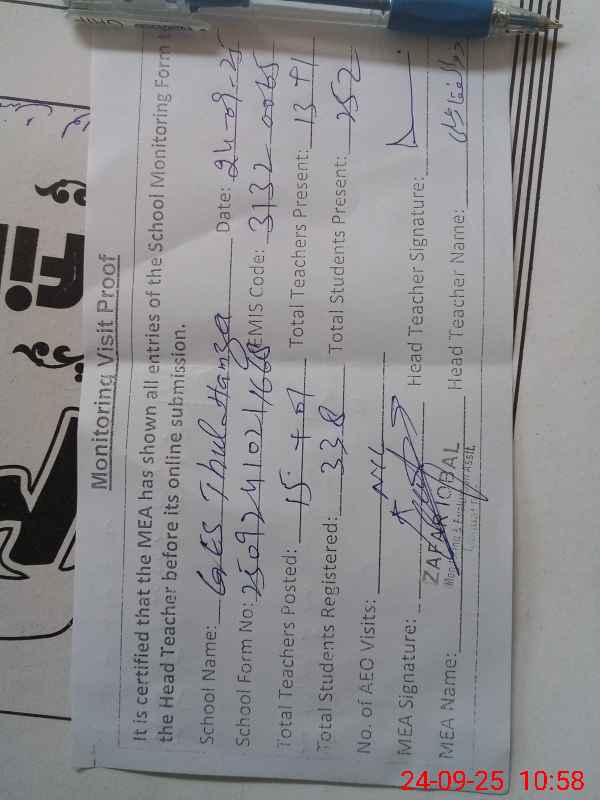 Monitoring Visit Proof
It is certified that the MEA has shown all entries of the School Monitoring Form
the Head Teacher before its online submission.
School Name: GES Thul Hamza Date: 24-09-25
School Form No: EMIS Code: 3132 0065
Total Teachers Posted: 15 + 01 Total Teachers Present: 13 + 1
Total Students Registered: 338 Total Students Present: 252
No. of AEO Visits: NIL
MEA Signature: Head Teacher Signature:
ZAFAR IQBAL
MEA Name: Head Teacher Name:
24-09-25 10:58